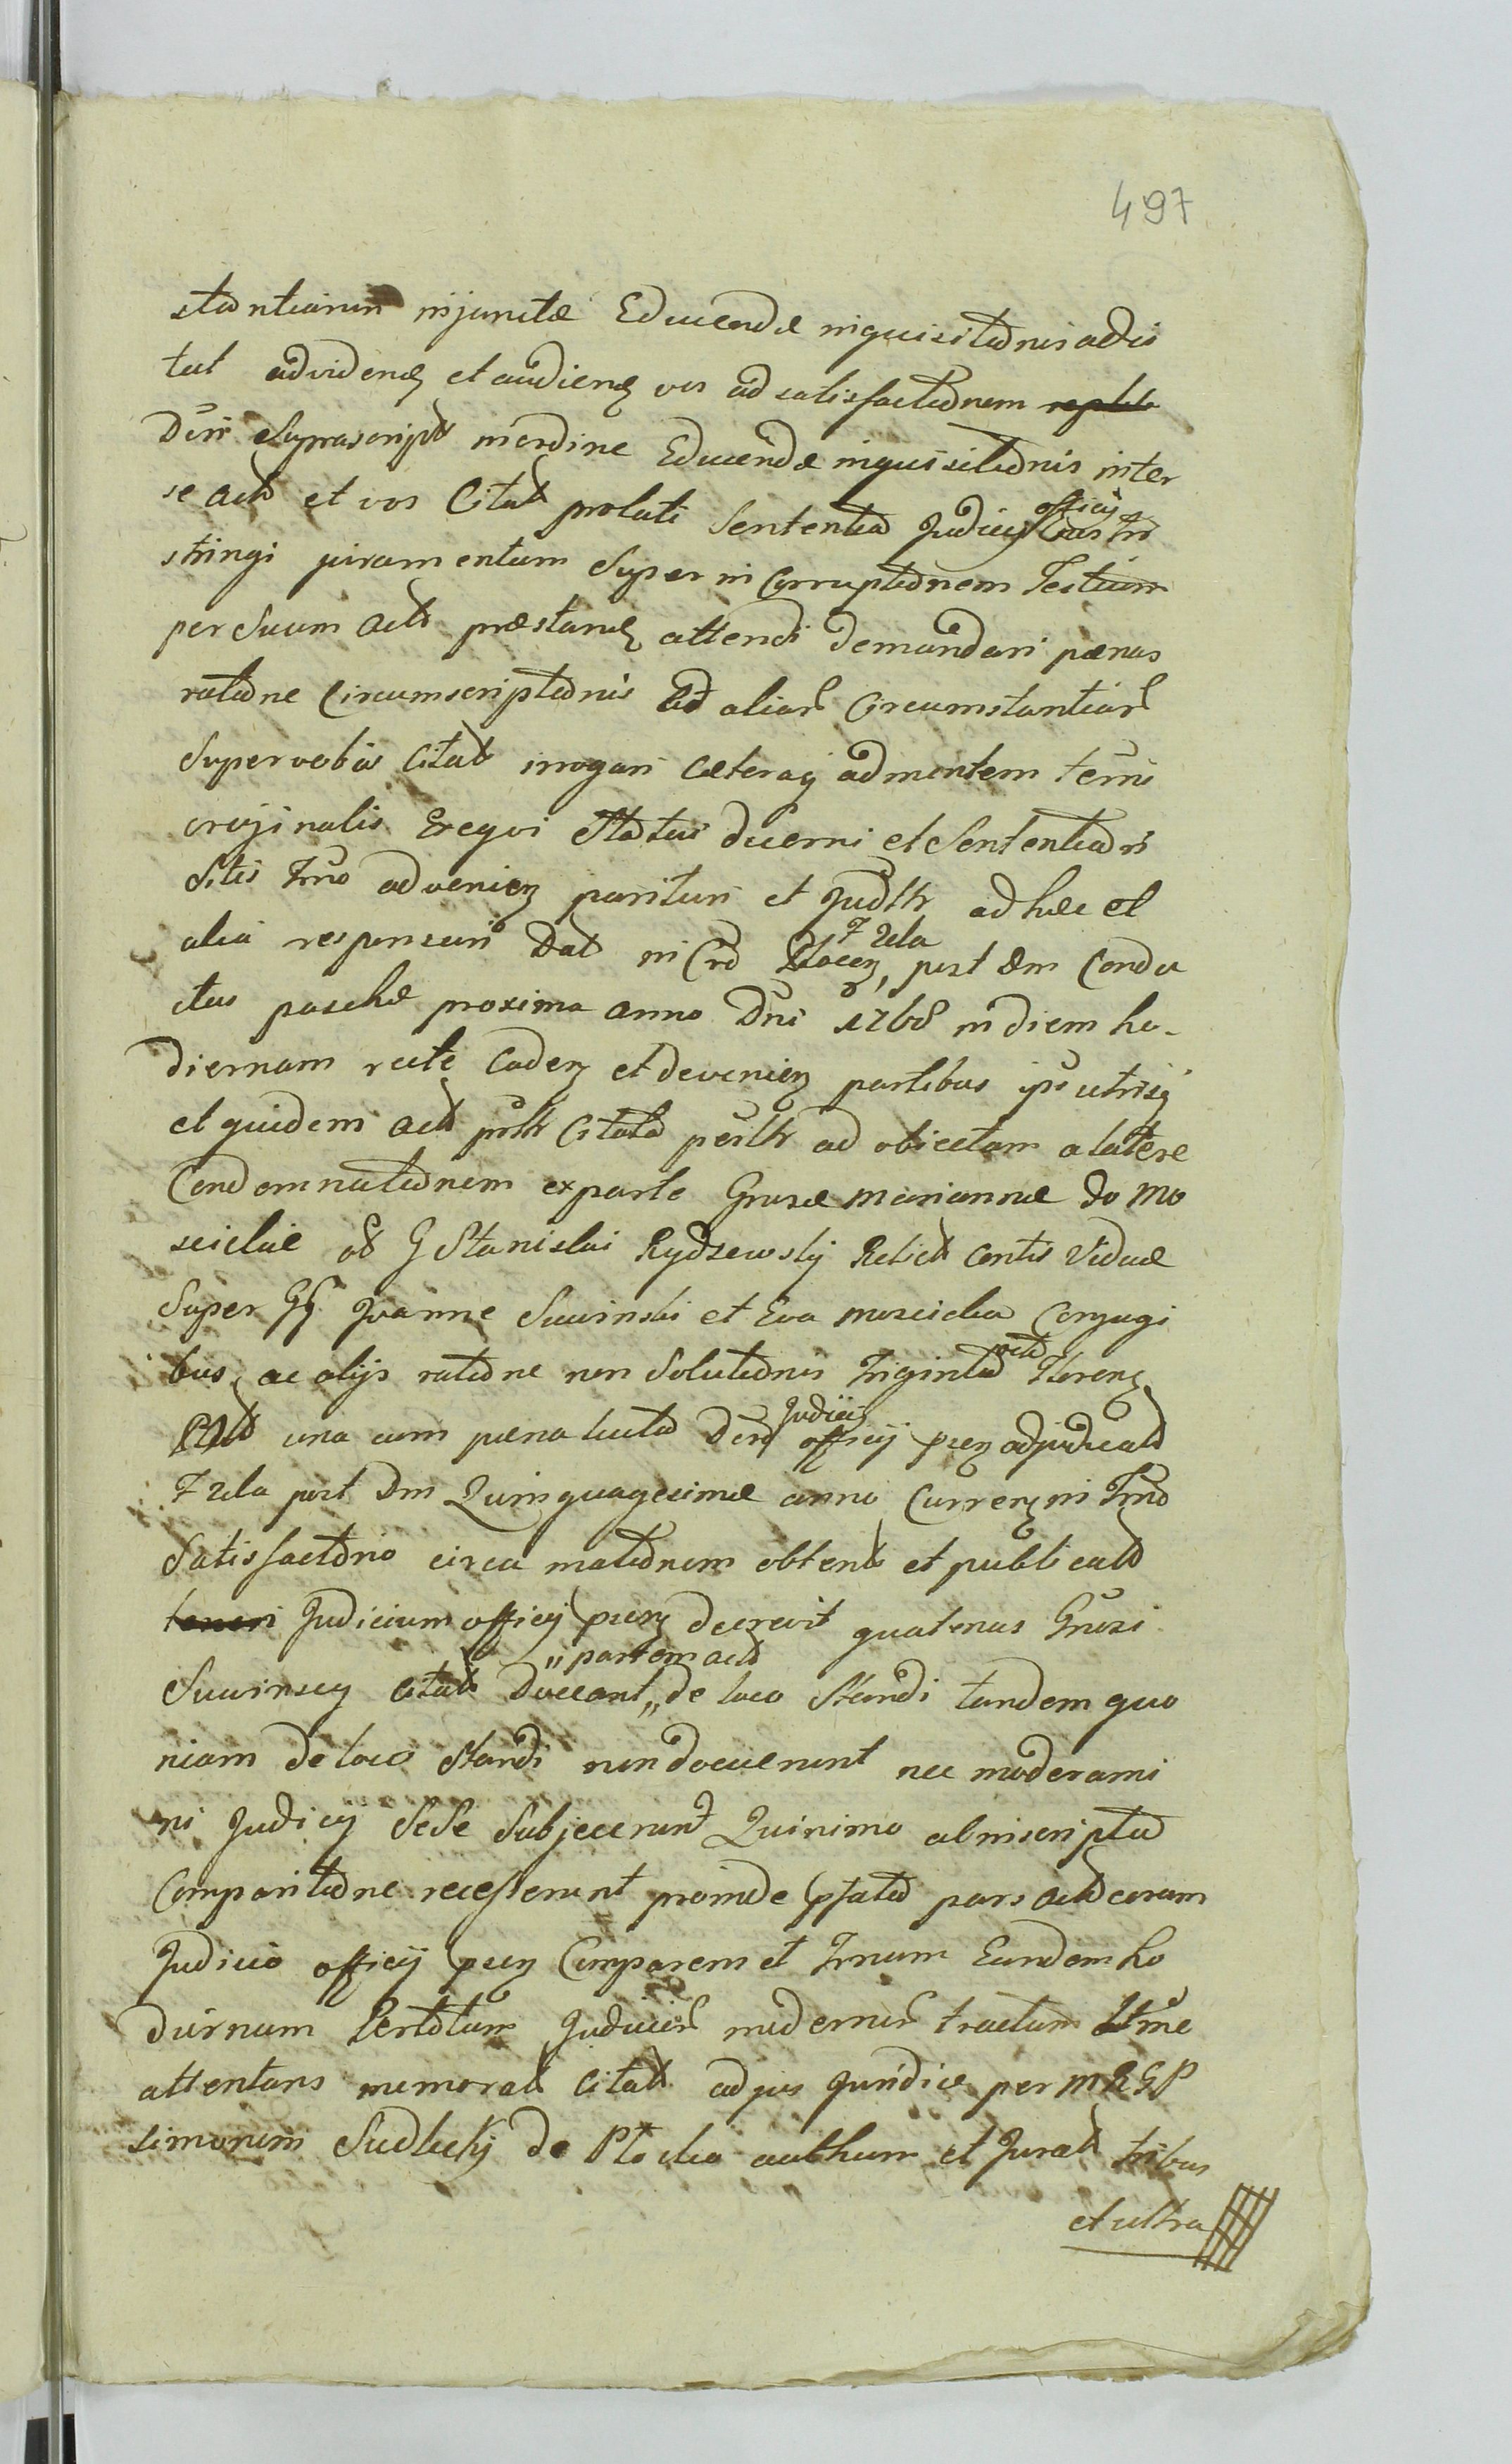 497
stantiarum injunctæ Educendæ inquisitionis adci
tat advidenḍ et audienḍ vos ad satisfactionem
Dcri suprascript inordine Educendæ inquisitionis inter
se act et vos Citat prolati Sententia Judicij officij Castr
stringi juramentum super in Corruptionem Testium
per suum act præstand attendi demandari pænas
ratione Circumscriptionis ad aliar Circumstantiar
super vobis Citat irrogari Cæteraq ad mentem termi
originalis Exeqvi Statui decerni et Sententiari
Sitis Trno advenien parituri et Judltr ad hæc et
alia responsuri Dat in Cro Plocen, Fzela post Dm Condu
ctus paschæ proxima anno Dni 1768 in diem ho-
diernam recte Caden et devenien partibus ipis utrisq
et quidem act psltr Citata psltr ad obiectam a latere
Condemnationem ex parte Grosæ mariannæ do Mo
scickæ olt G Stanislai Rydzewskij Relict Contis Viduæ
super GG Joanne Suwinski et Eva moscicka Conjugi
bus ac alijs ratione non Solutionis Triginta octo Floren
Plct una cum pæna lucta Dcro Judicij officij pncn adjudicata
Fzela post Dm Quinquagesimæ anno Curren in Trno
satisfactorio circa mationem obtent et publicata
teneri Judicium officij pncn decrevit quatenus Grosi
Suwinscy Citat doceant „ partem act „ de loco Standi tandem quo
niam de loco standi non docuerunt nec moderami
ni Judicij Sese Subjecerunt Quinimo ab inscripta
Comparitione recesserunt proinde pfata pars act coram
Judicio officij pncn Comparens et Trnum Eundem ho
diernum Pertotum Judicior modernor tractum Lttme
attentans memorat Citat ad jus Juridice per MRGP
simonem Sudlickij de Plocko authum et Jurat tribus
et ultra